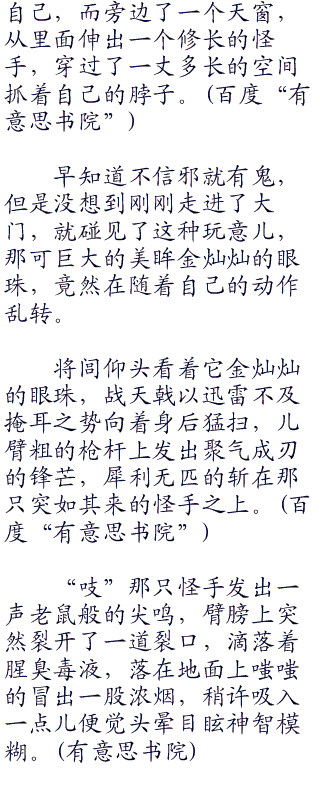 自己，而旁边了一个天窗，
从里面伸出一个修长的怪
手，穿过了一丈多长的空间
抓着自己的脖子。(百度“有
意思书院”)
早知道不信邪就有鬼，
但是没想到刚刚走进了大
门，就碰见了这种玩意儿，
那可巨大的美眸金灿灿的眼
珠，竟然在随着自己的动作
乱转。
将闾仰头看着它金灿灿
的眼珠，战天戟以迅雷不及
掩耳之势向着身后猛扫，儿
臂粗的枪杆上发出聚气成刃
的锋芒，犀利无匹的斩在那
只突如其来的怪手之上。(百
度“有意思书院”)
“吱”那只怪手发出一
声老鼠般的尖鸣，臂膀上突
然裂开了一道裂口，滴落着
腥臭毒液，落在地面上嗤嗤
的冒出一股浓烟，稍许吸入
一点儿便觉头晕目眩神智模
糊。(有意思书院)